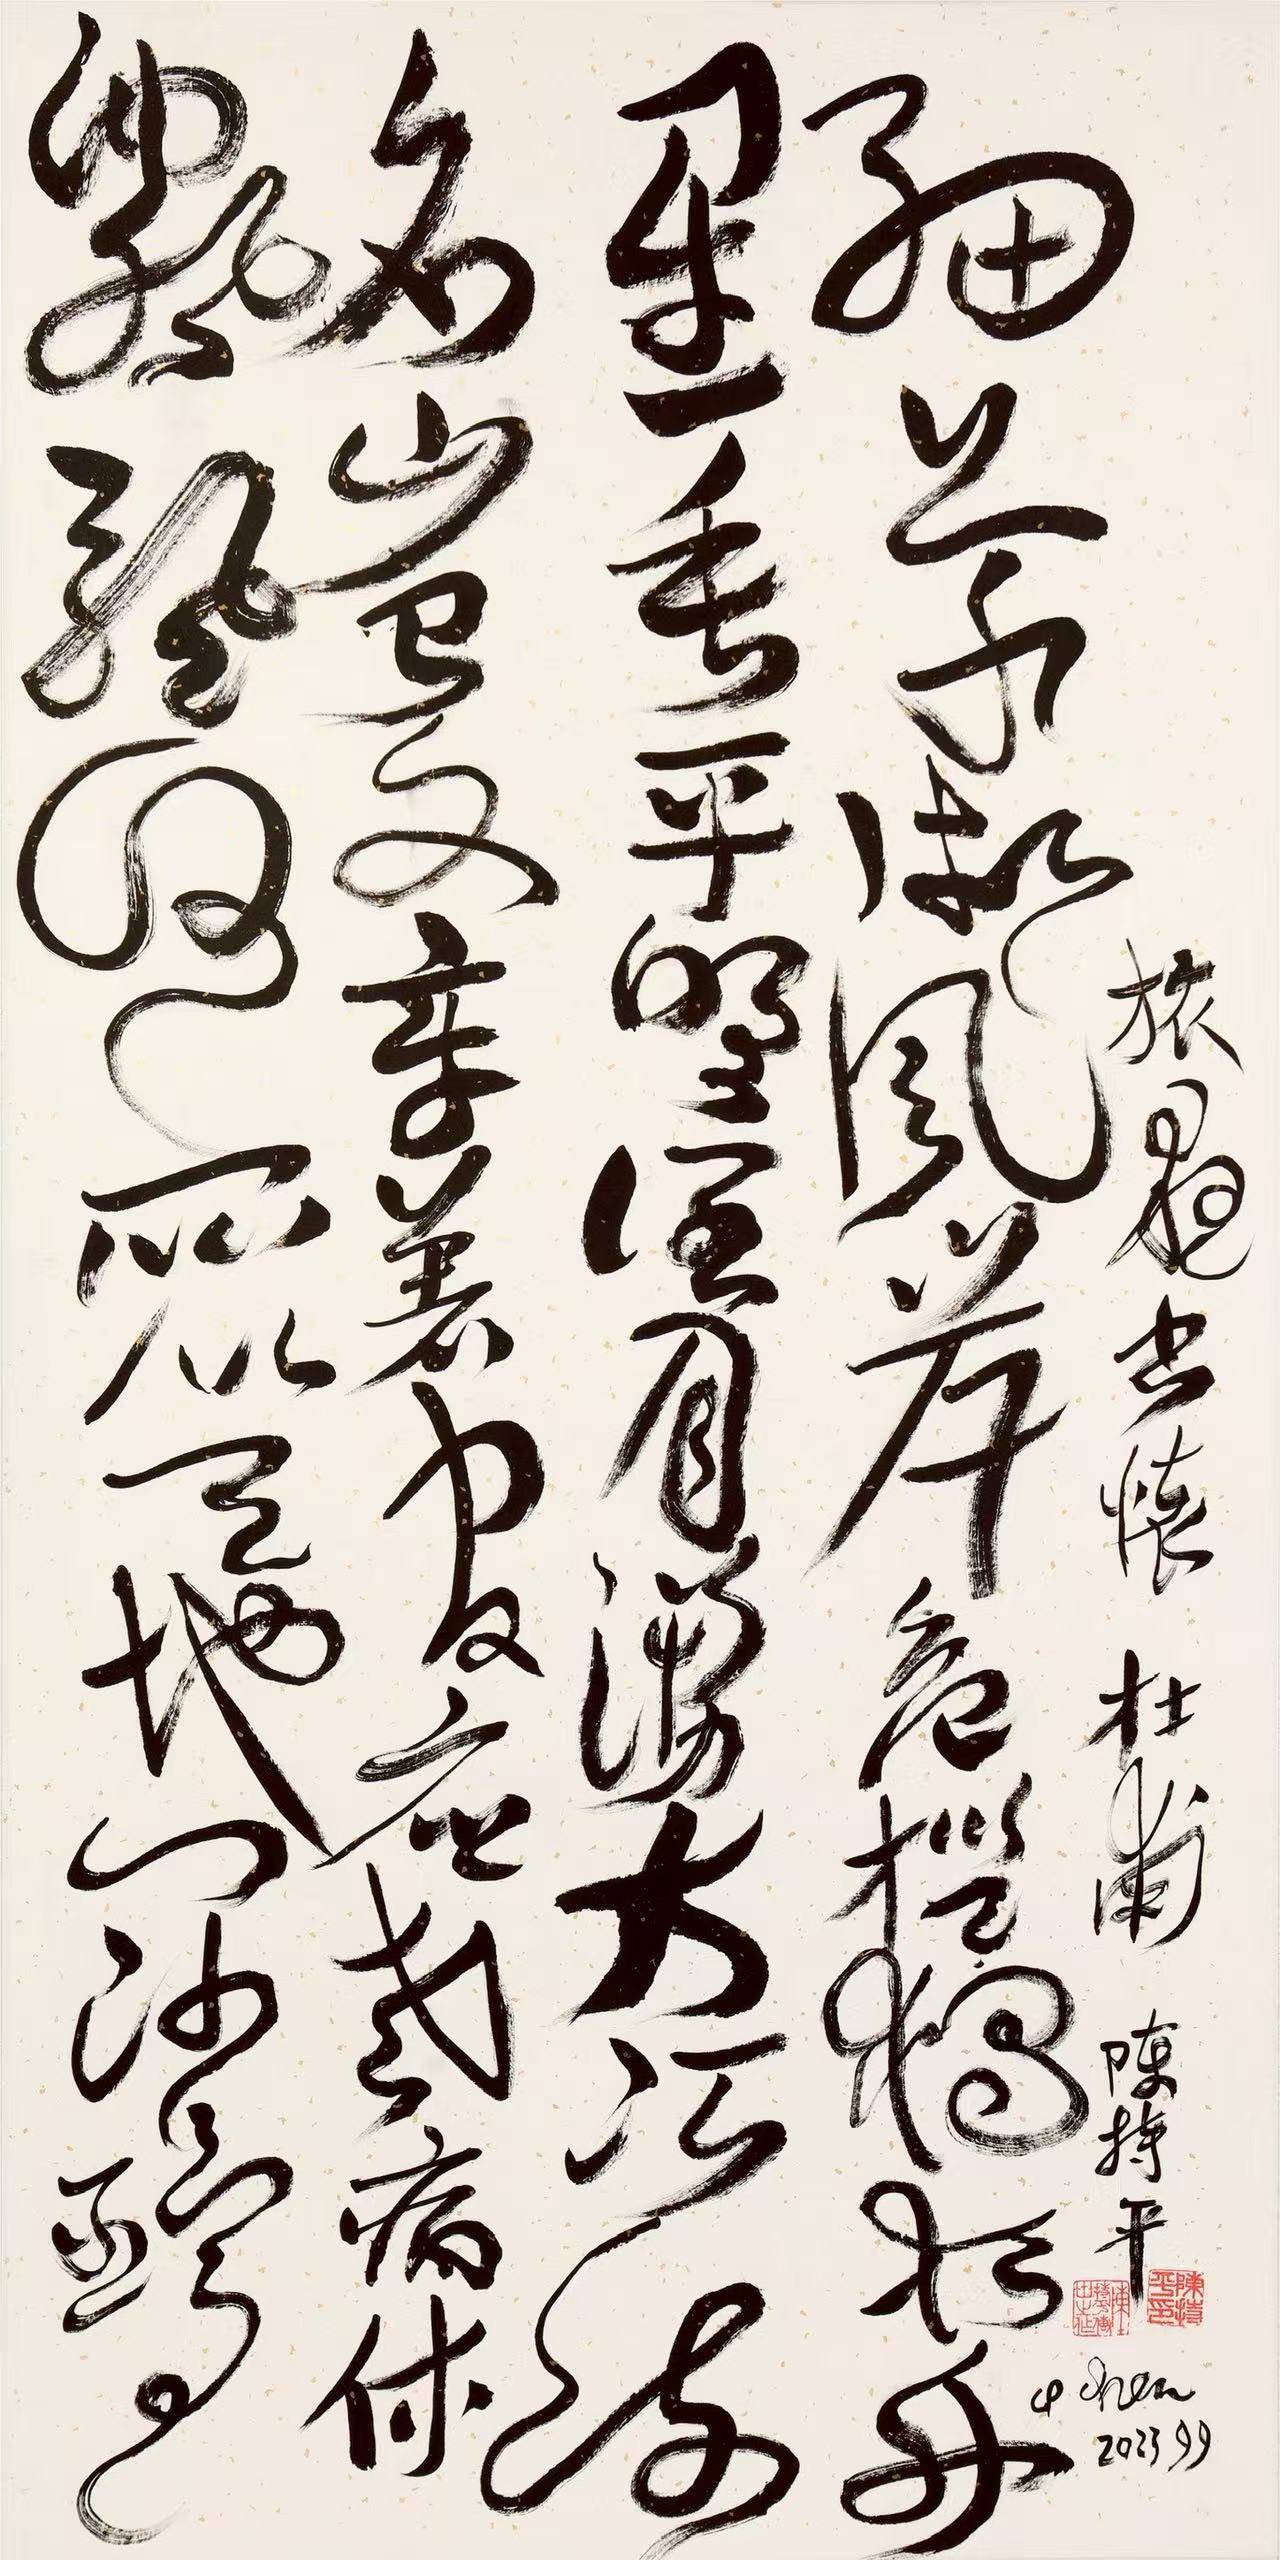 旅夜書懷 杜甫 陳持平
陳持平印
chen
2023 99
細草微風岸危檣獨夜舟
星垂平野闊月湧大江流
名豈文章著官應老病休
飄飄何所似天地一沙鷗